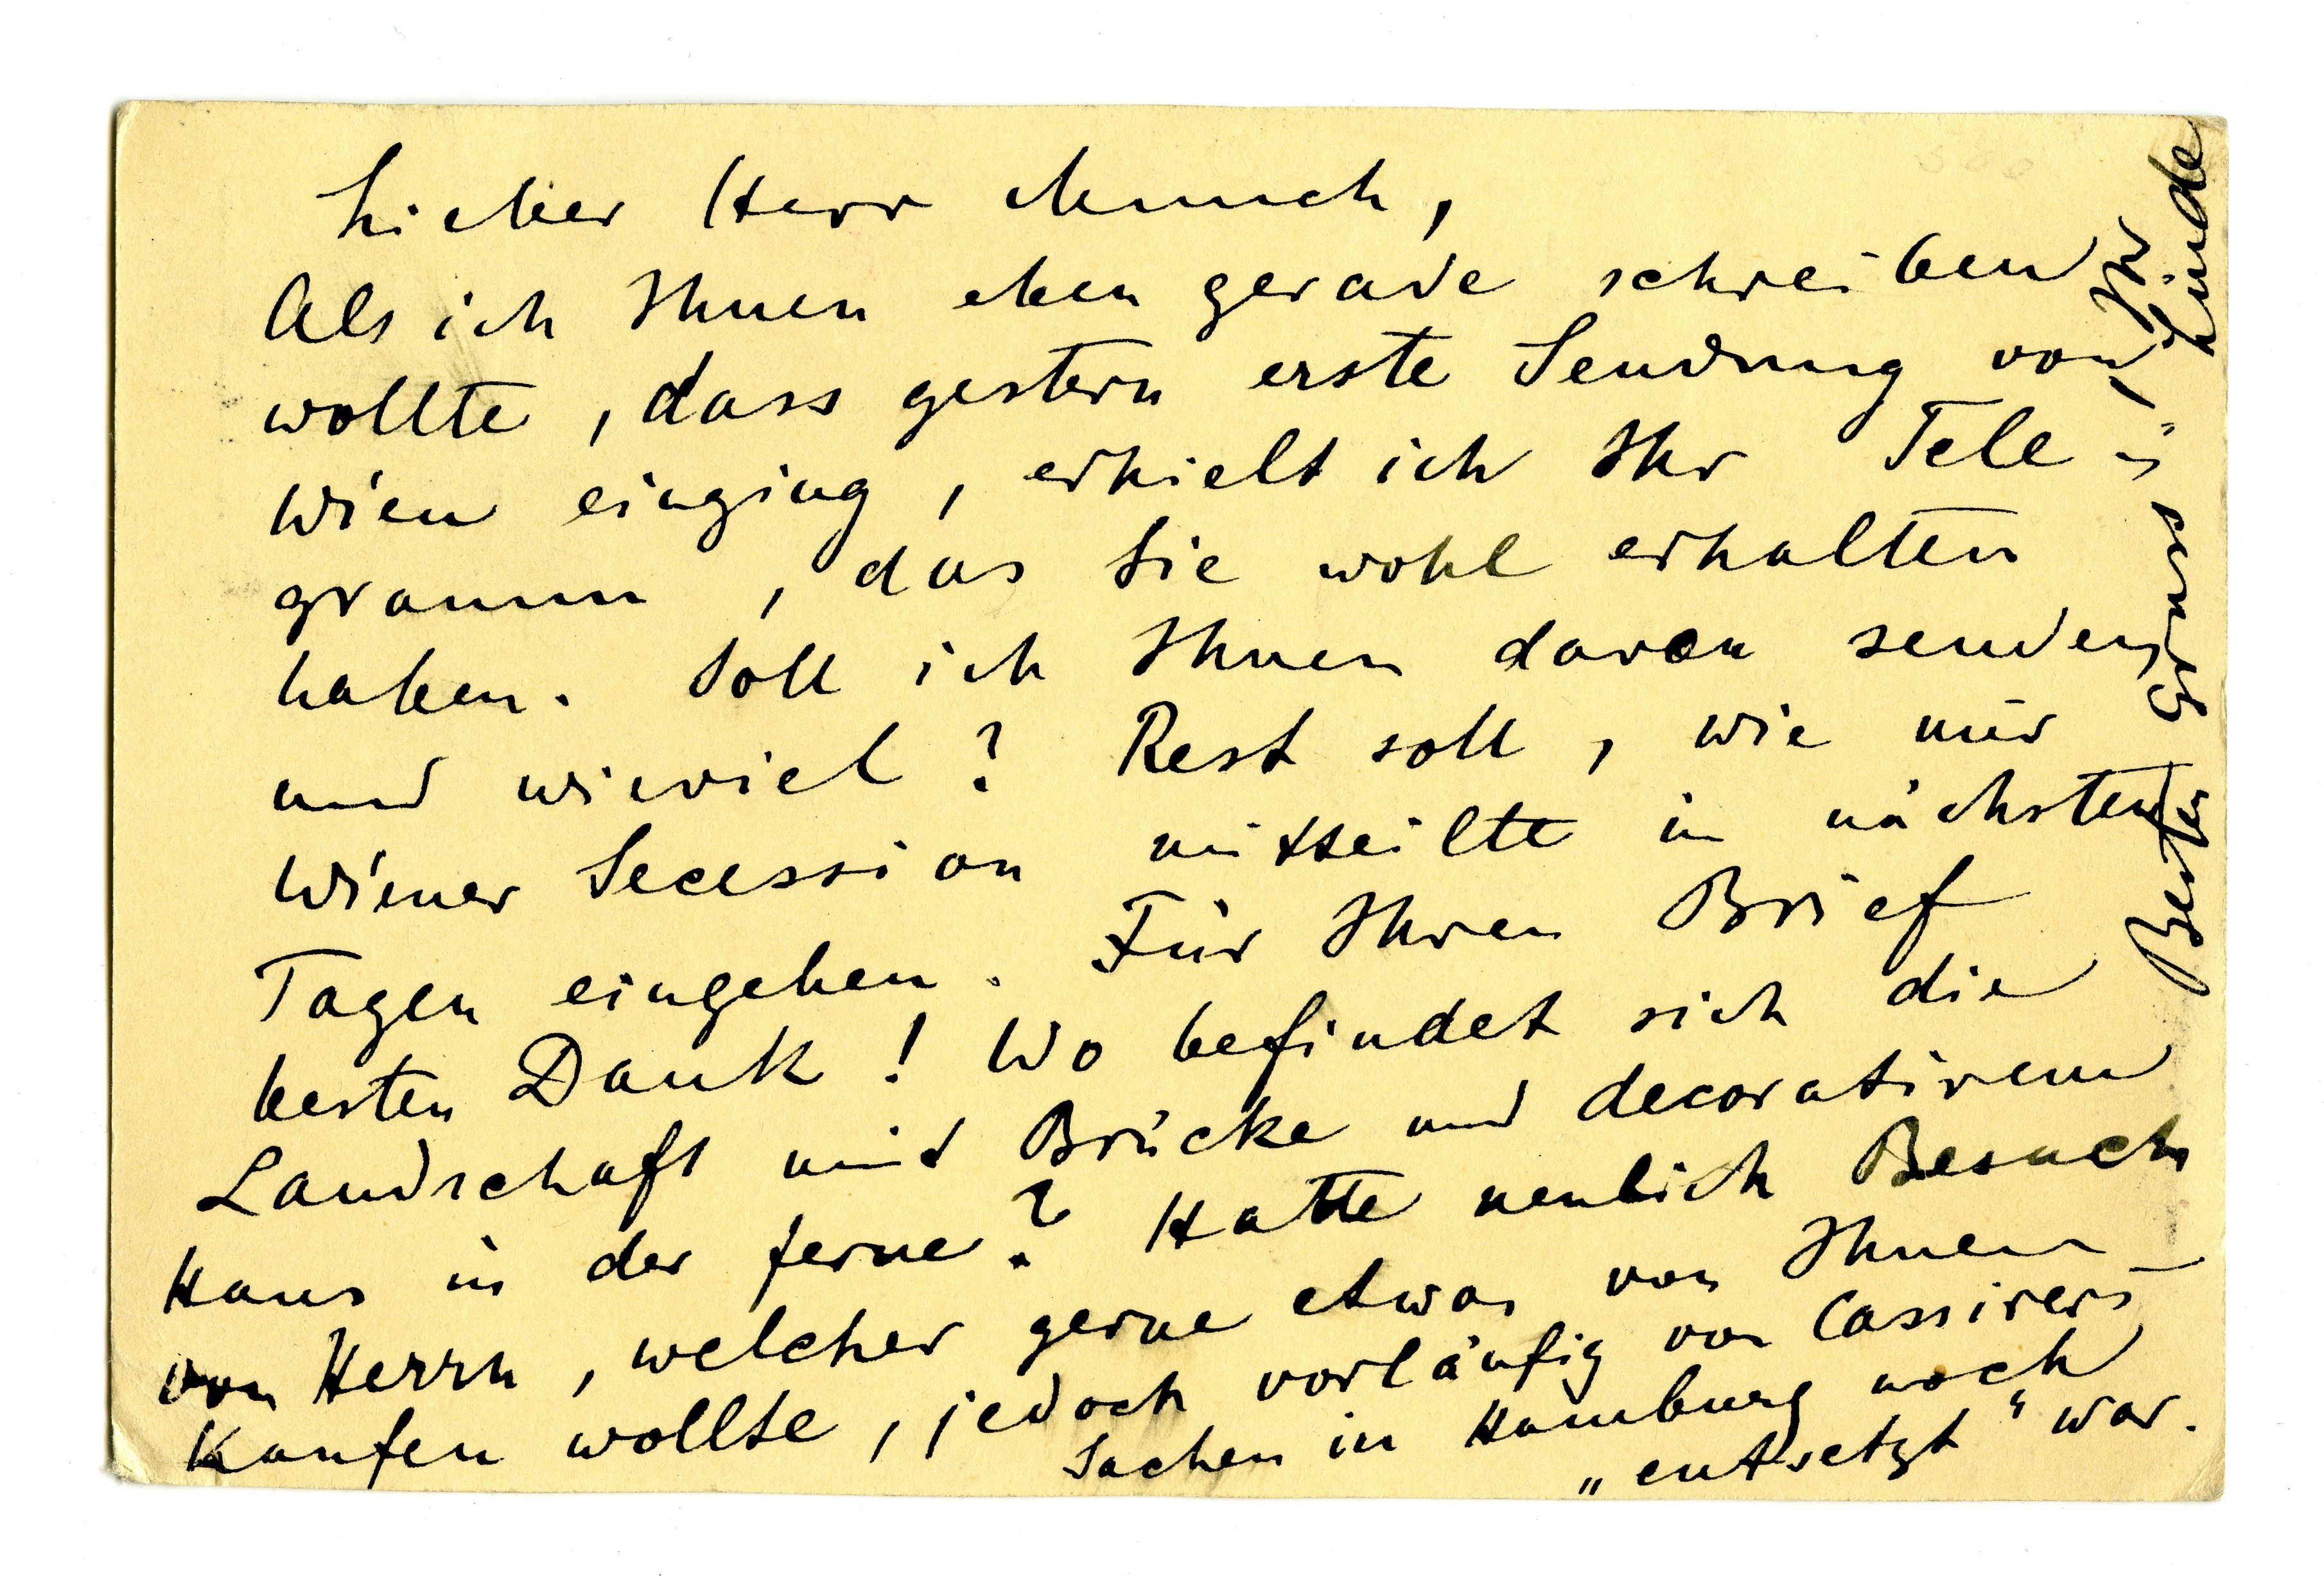 Lieber Herr Munch,
Als ich Ihnen eben gerade schreiben
wollte, dass gestern erste Sendung von
Wien einging, erhielt ich Ihr Tele=
gramm, das Sie wohl erhalten
haben. Soll ich Ihnen davon senden
und wieviel? Rest soll, wie mir
Wiener Secession mitteilte in nächsten
Tagen eingehen. Für Ihren Brief
besten Dank! Wo befindet sich die
Landschaft mit Brücke und decorativem
Haus in der ferne? Hatte neulich Besuch
von Herrn, welcher gerne etwas von Ihnen
Kaufen wollte, jedoch vorläufig von Cassirers
Sachen in Hamburg noch
„entsetzt" war.
Besten Gruss
Ihr
Linde